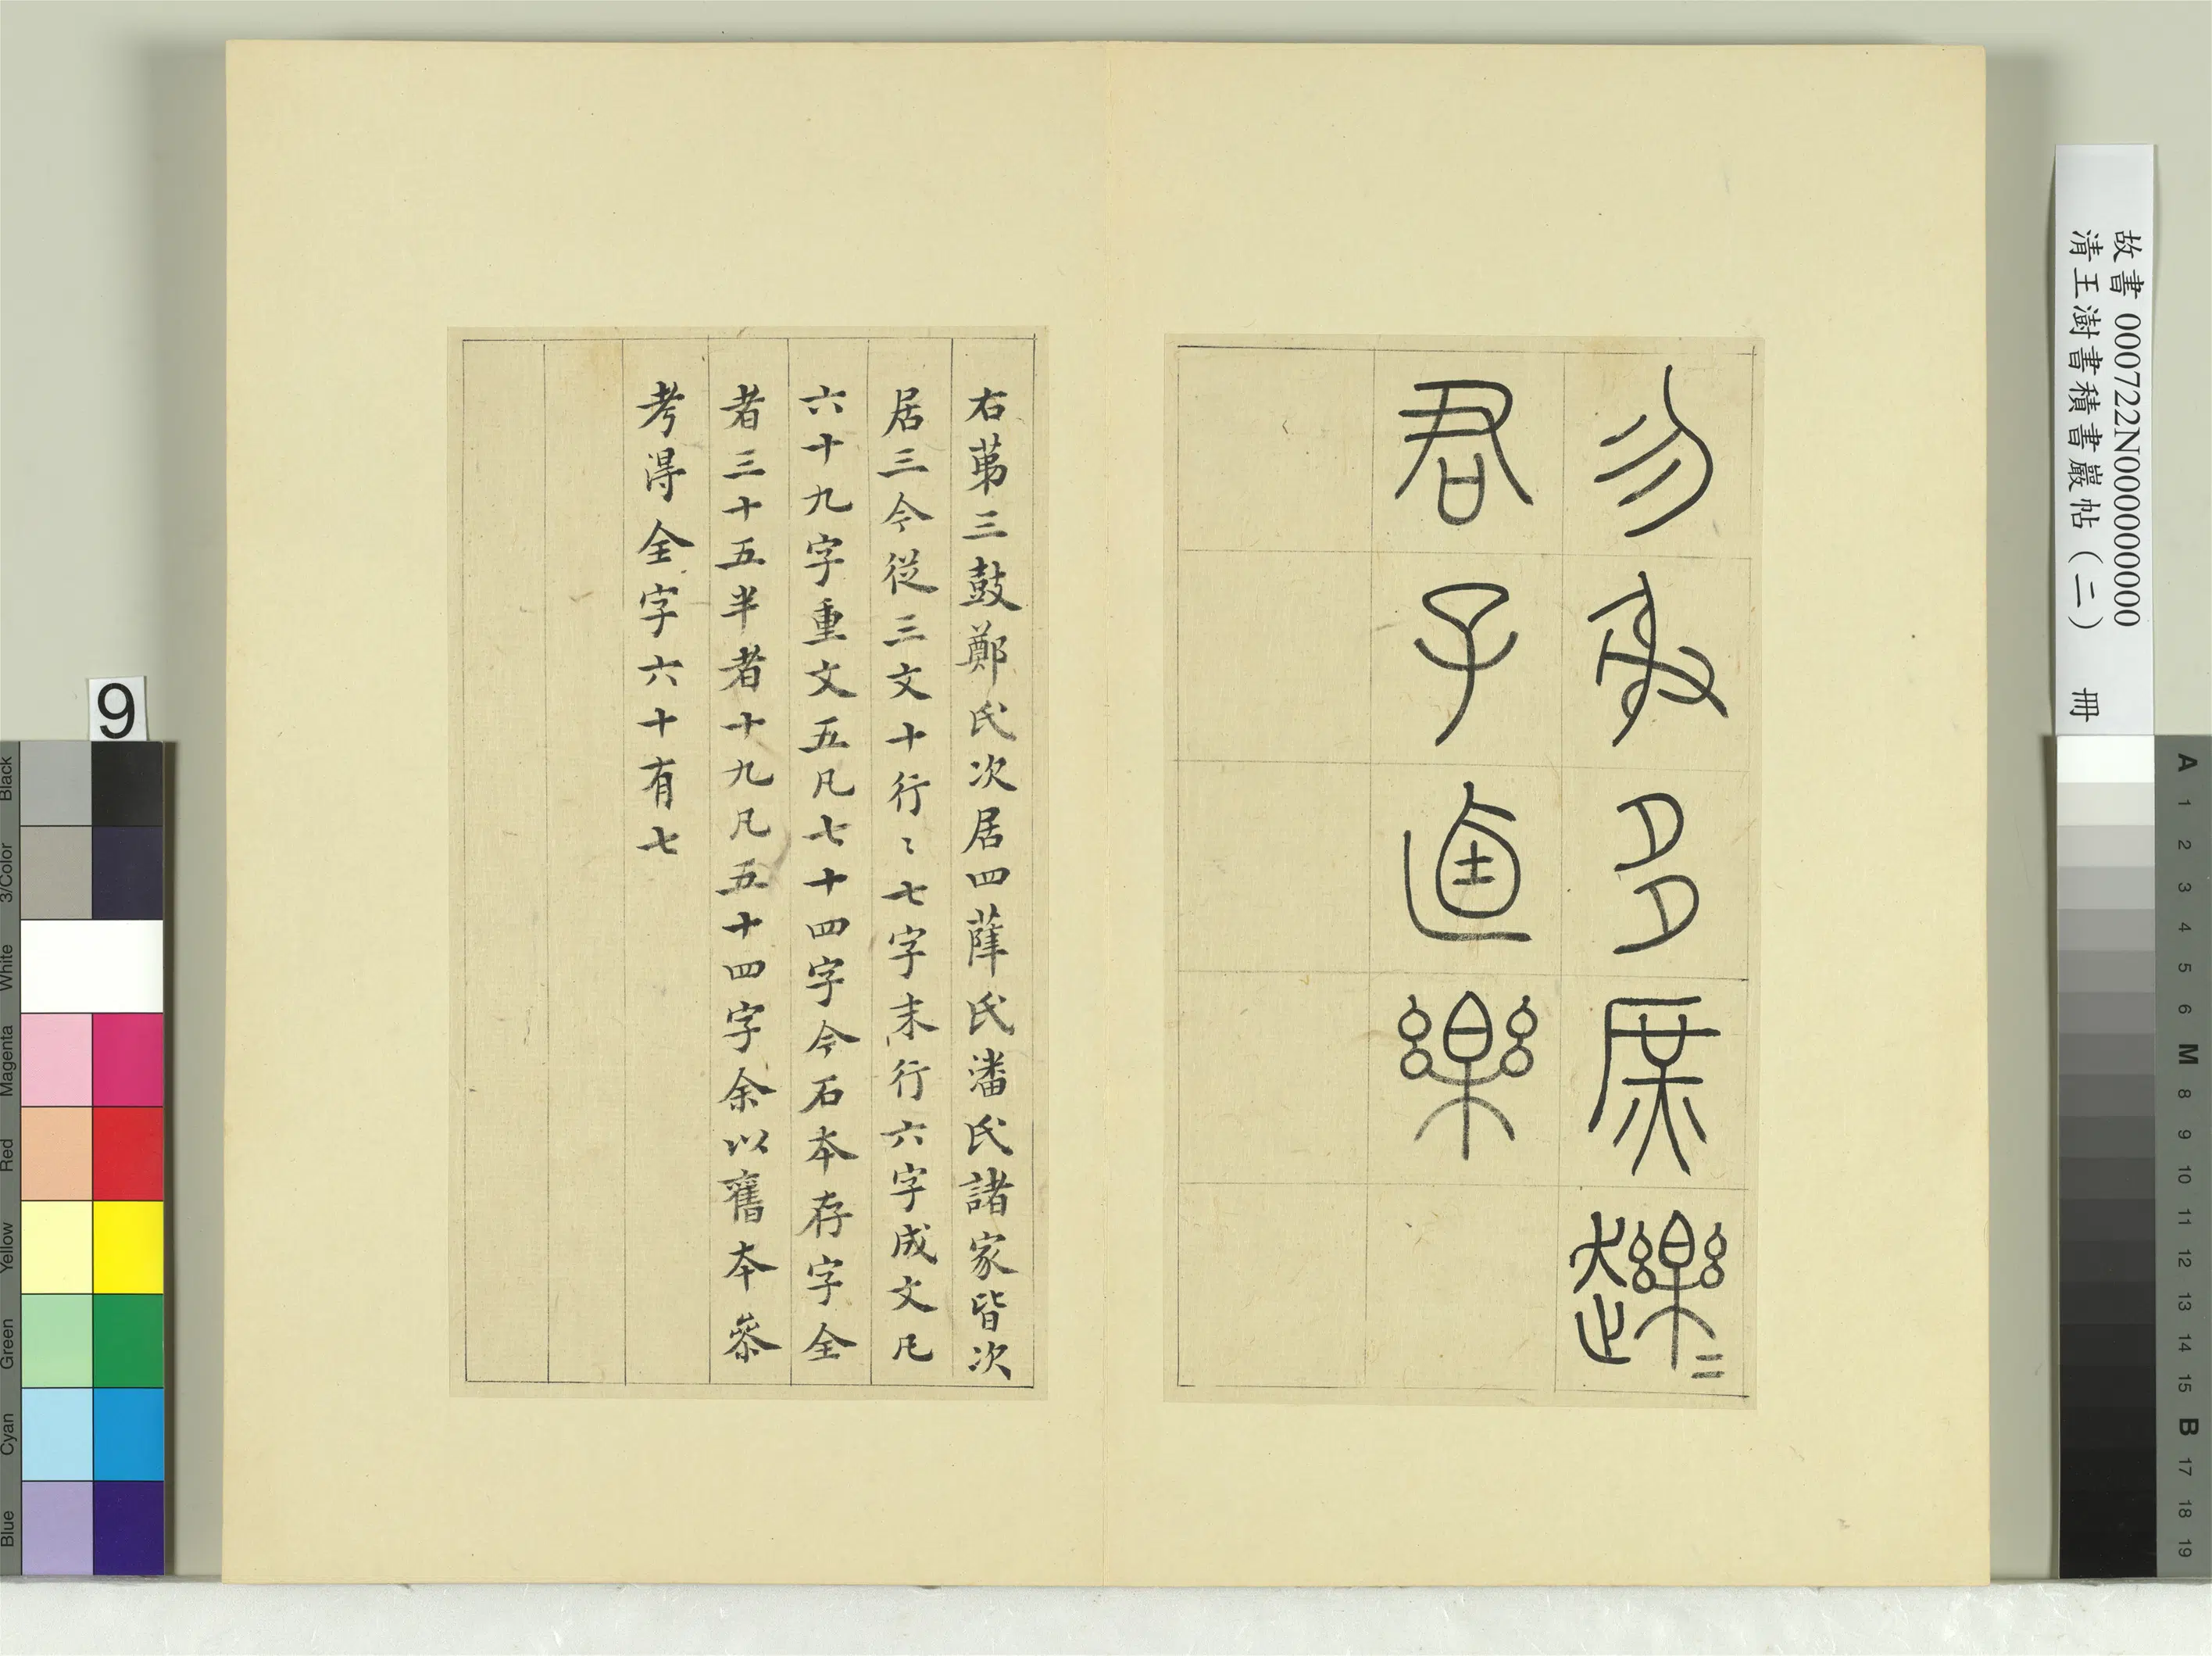 故書 000722N000000000
清王澍書積書巖帖（二） 冊
勿射多庶
君子逌樂
右苐三鼓鄭氏次居四薛氏潘氏諸家皆次
居三今從三文十行〻七字末行六字成文凡
六十九字重文五凡七十四字今石本存字全
者三十五半者十九凡五十四字余以舊本叅
考得全字六十有七
9
Black
3/Color
White
Magenta
Red
Yellow
Green
Cyan
Blue
A
1
2
3
4
5
6
M
8
9
10
11
12
13
14
15
B
17
18
19